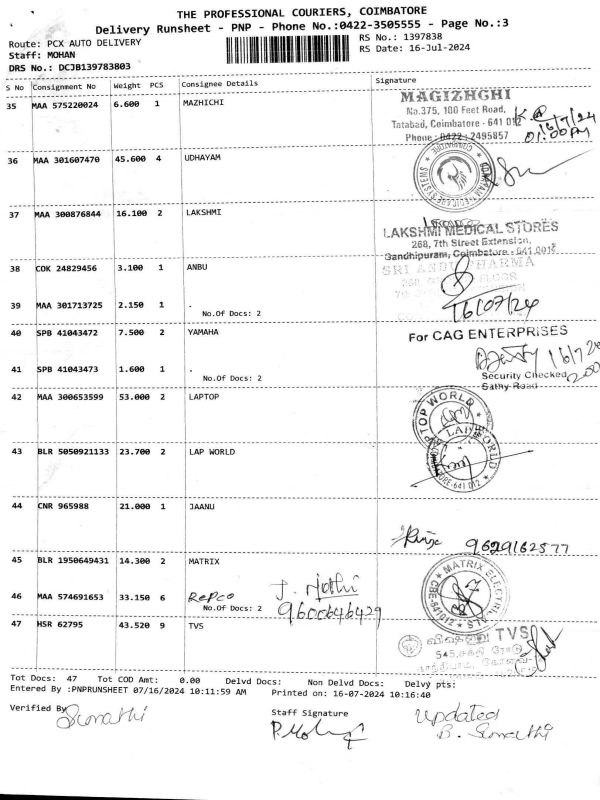 THE PROFESSIONAL COURIERS, COIMBATORE
Delivery Runsheet - PNP - Phone No.:0422-3505555 - Page No.:3
Route: PCX AUTO DELIVERY
RS No.: 1397838
Staff: MOHAN
RS Date: 16-Jul-2024
DRS No.: DCJB139783803
S No Consignment No Weight PCS Consignee Details Signature
35 MAA 575220024 6.600 1 MAZHICHI
MAGIZHCHI
No.375, 100 Feet Road,
Tatabad, Coimbatore - 641 012
Phone : 0422 - 2495857
16/7/24
01:00PM
36 MAA 301607470 45.600 4 UDHAYAM
37 MAA 300876844 16.100 2 LAKSHMI
LAKSHMI MEDICAL STORES
268, 7th Street Extension,
Gandhipuram, Coimbatore - 641 001
38 COK 24829456 3.100 1 ANBU
SRI ANBU PHARMA
39 MAA 301713725 2.150 1 .
No.Of Docs: 2
16/07/24
40 SPB 41043472 7.500 2 YAMAHA
For CAG ENTERPRISES
16/7/24
41 SPB 41043473 1.600 1 .
No.Of Docs: 2
Security Checked
Sathy Road
42 MAA 300653599 53.000 2 LAPTOP
TOP WORLD
43 BLR 5050921133 23.700 2 LAP WORLD
LAP WORLD
44 CNR 965988 21.000 1 JAANU
9629162577
45 BLR 1950649431 14.300 2 MATRIX
MATRIX ELECTRI
46 MAA 574691653 33.150 6 Repco
No.Of Docs: 2
J. Jothi
9600646429
47 HSR 62795 43.520 9 TVS
TVS
545, சக்தி ரோடு
காந்திபுரம், கோவை-
Tot Docs: 47 Tot COD Amt: 0.00 Delvd Docs: Non Delvd Docs: Delvy pts:
Entered By :PNPRUNSHEET 07/16/2024 10:11:59 AM Printed on: 16-07-2024 10:16:40
Verified By Sumathi
Staff Signature
P. Mohan
Updated
B. Sumathi